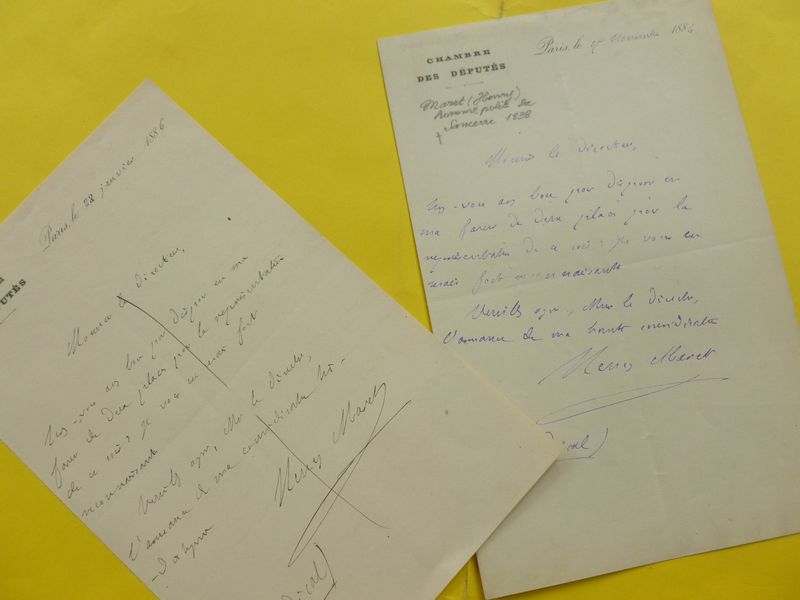 CHAMBRE
DES DÉPUTÉS
Paris, le Novembre 188
Maret (Henry)
homme polit
Sancerre 1838
le Directeur,
-vous assez bon pour disposer en
ma faveur de deux places pour la
représentation de ce soir? Je vous en
serais fort reconnaissant.
Veuillez agréer, Monsr le Directeur,
l'assurance de ma haute considération
Henry Maret
PUTÉS
Paris, le 28 janvier 1886
Monsieur le Directeur,
-vous assez bon pour disposer en ma
faveur de deux places pour la représentation
de ce soir? Je vous en serais fort
reconnaissant.
Veuillez agréer, Monsr le Directeur,
l'assurance de ma considération
Henry Maret